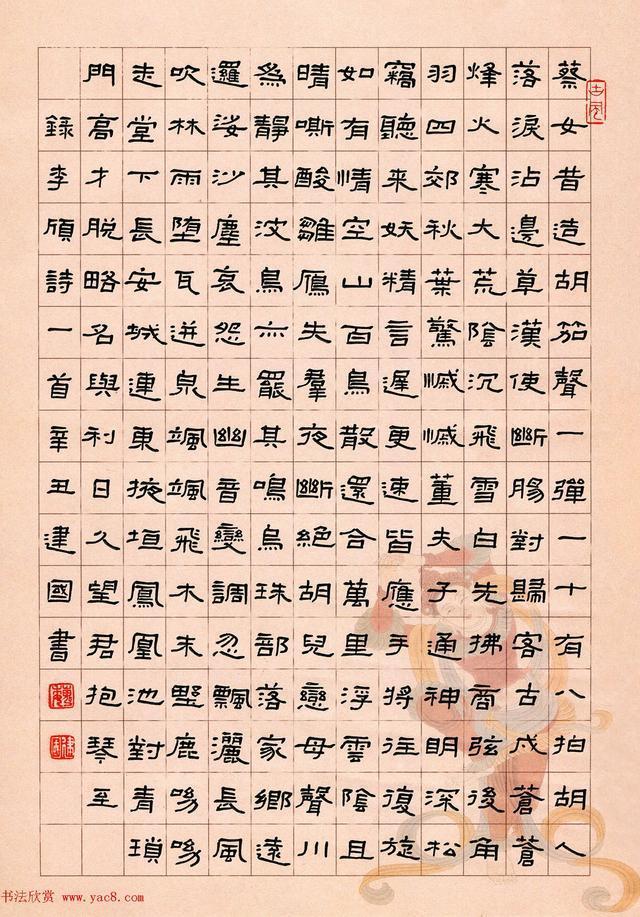 蔡女昔造胡笳聲一彈一十有八拍胡人
落淚沾邊草漢使斷腸對歸客古戍蒼蒼
烽火寒大荒陰沉飛雪白先拂商弦後角
羽四郊秋葉驚慽慽董夫子通神明深松
竊聽來妖精言遲更速皆應手將往復旋
如有情空山百鳥散還合萬里浮雲陰且
晴嘶酸雛鴈失羣夜斷絕胡兒戀母聲川
爲靜其波鳥亦罷其鳴烏珠部落家鄉遠
邏娑沙塵哀怨生幽音變調忽飄灑長風
吹林雨墮瓦迸泉颯颯飛木末野鹿呦呦
走堂下長安城連東掖垣鳳凰池對青瑣
門高才脫略名與利日久望君抱琴至
錄李頎詩一首辛丑建國書
书法欣赏 www.yac8.com